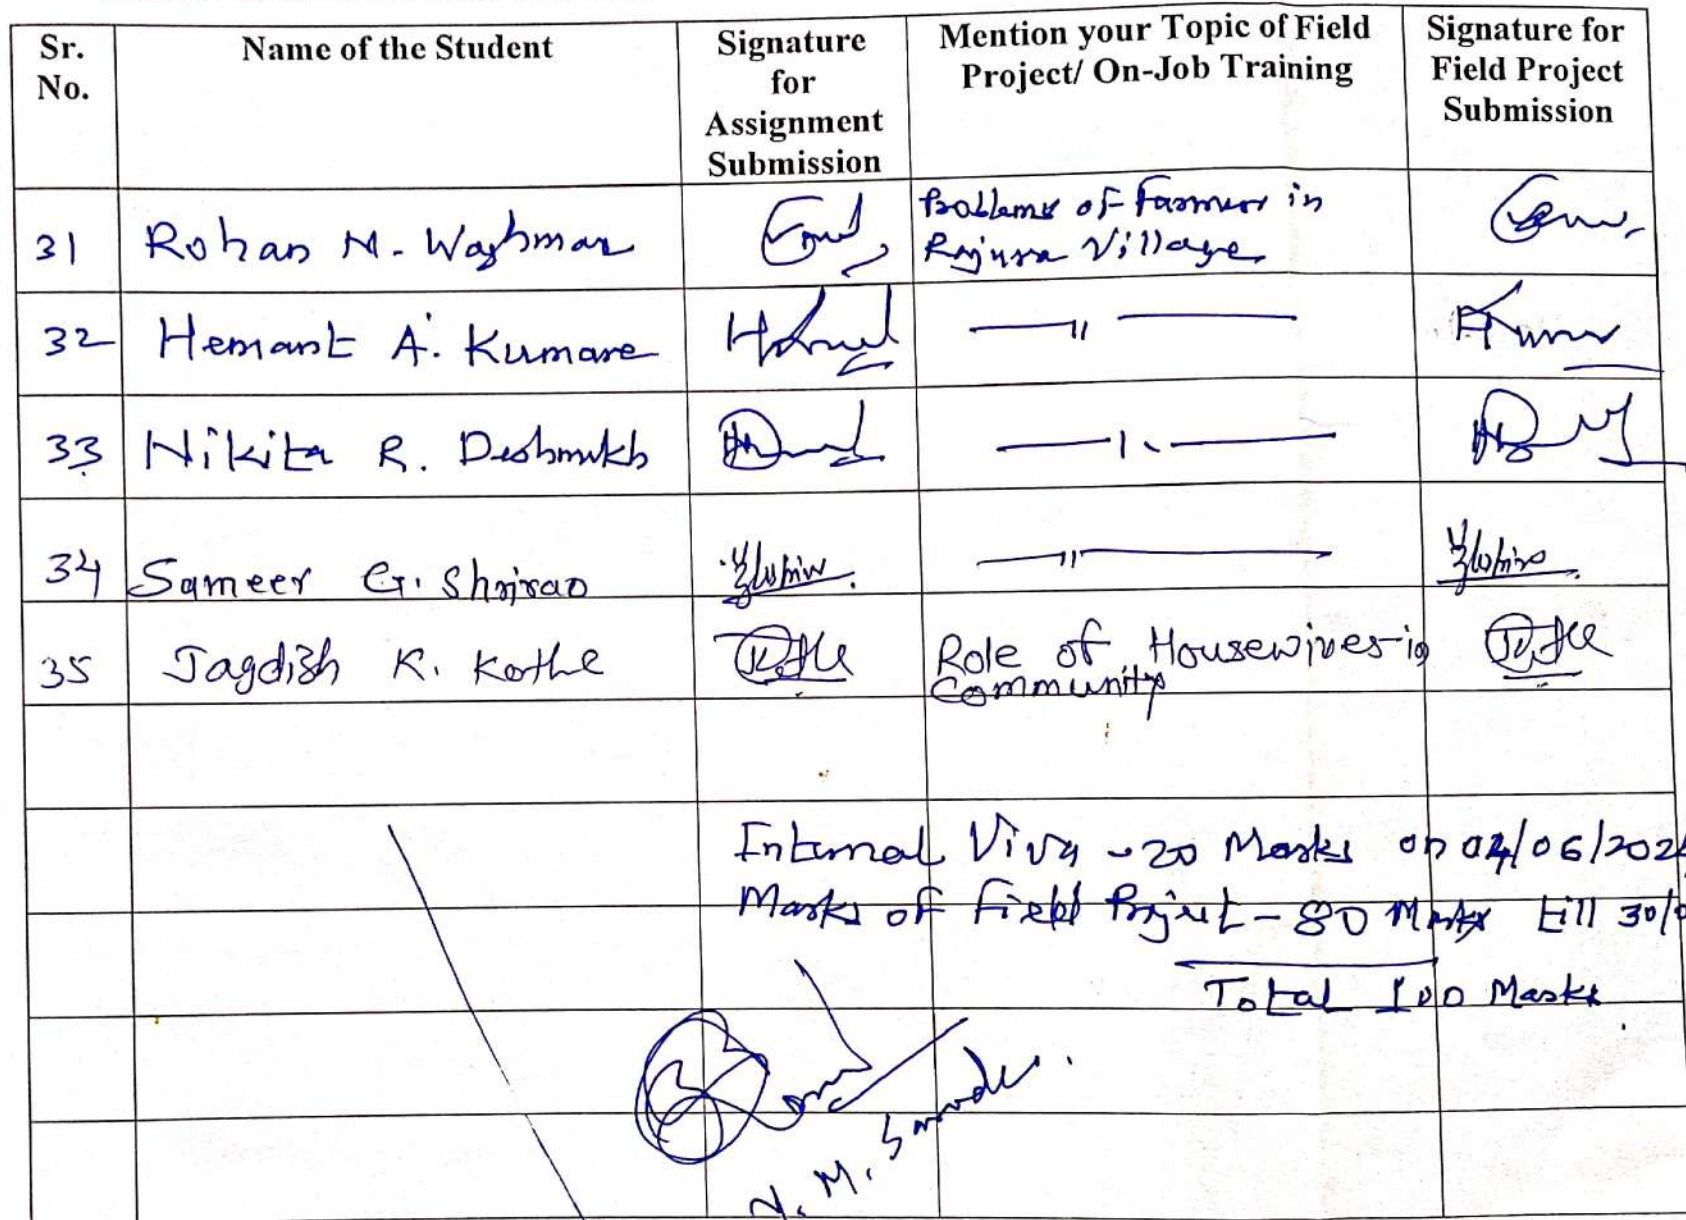 Sr. No. Name of the Student Signature for Assignment Submission Mention your Topic of Field Project/ On-Job Training Signature for Field Project Submission
31 Rohan N. Waghmar Problems of Farmer in
Rajura Village
32 Hemant A. Kumare —〃—
33 Nikita R. Deshmukh —〃—
34 Sameer G. Shrirao —〃—
35 Jagdish K. Kothe Role of Housewives in
Community
Internal Viva - 20 Marks on 04/06/202
Marks of Field Project - 80 Marks till 30/
Total 100 Marks
N. M.